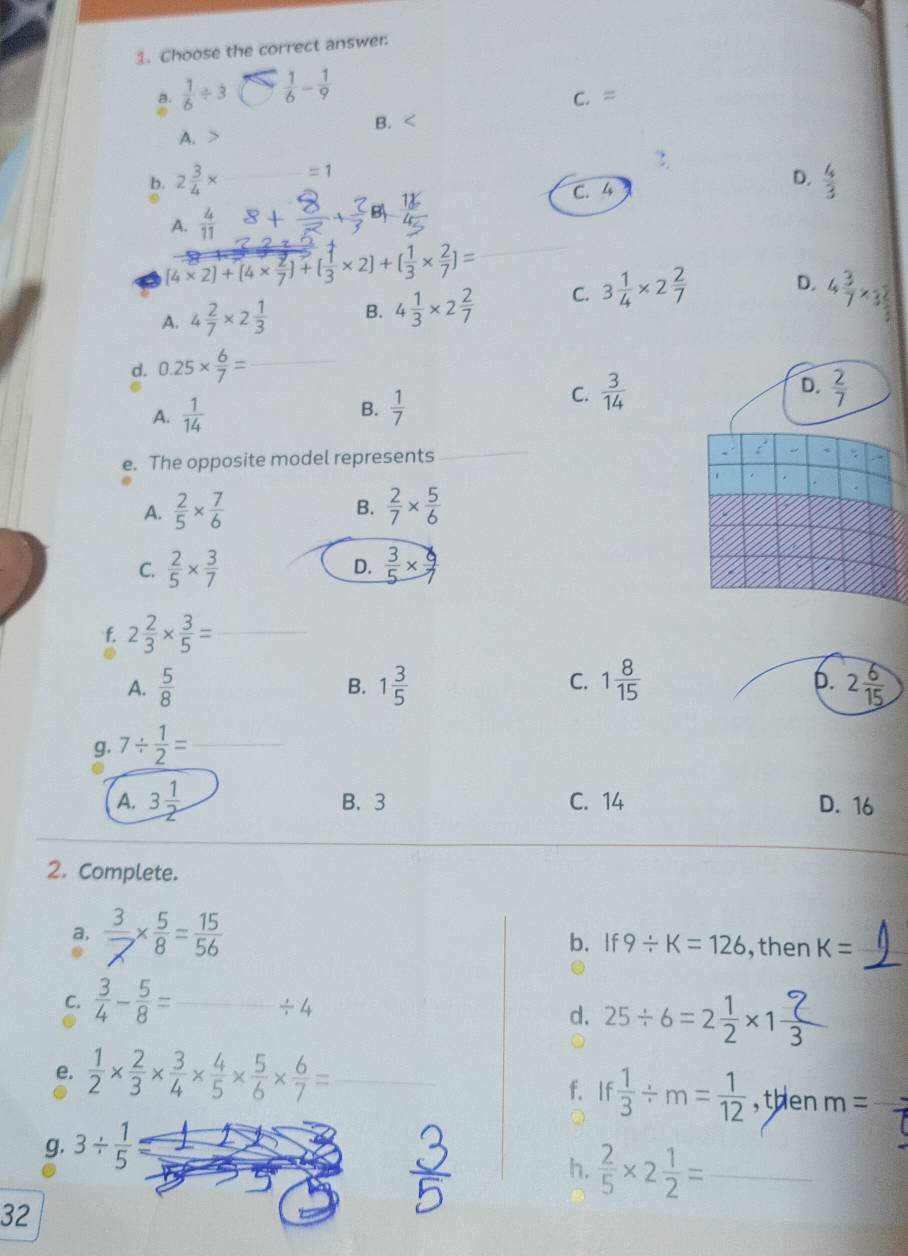 1. Choose the correct answer.
a. 1/6 ÷ 3 1/6 − 1/9
A. > B. < C. =
b. 2 3/4 × ______ = 1
A. 4/11 B. 11/4 C. 4 D. 4/3
8 + 8/7 + 2/3
(4 × 2) + (4 × 2/7) + (1/3 × 2) + (1/3 × 2/7) = ______
A. 4 2/7 × 2 1/3 B. 4 1/3 × 2 2/7 C. 3 1/4 × 2 2/7 D. 4 3/7 ×
d. 0.25 × 6/7 = ______
A. 1/14 B. 1/7 C. 3/14 D. 2/7
e. The opposite model represents ______
A. 2/5 × 7/6 B. 2/7 × 5/6
C. 2/5 × 3/7 D. 3/5 × 6/7
f. 2 2/3 × 3/5 = ______
A. 5/8 B. 1 3/5 C. 1 8/15 D. 2 6/15
g. 7 ÷ 1/2 = ______
A. 3 1/2 B. 3 C. 14 D. 16
2. Complete.
a. 3/7 × 5/8 = 15/56
b. If 9 ÷ K = 126, then K = 1
c. 3/4 − 5/8 = ______ ÷ 4
d. 25 ÷ 6 = 2 1/2 × 1 2/3
e. 1/2 × 2/3 × 3/4 × 4/5 × 5/6 × 6/7 = ______
f. If 1/3 ÷ m = 1/12, then m =
g. 3 ÷ 1/5 = 3/5
h. 2/5 × 2 1/2 = ______
32